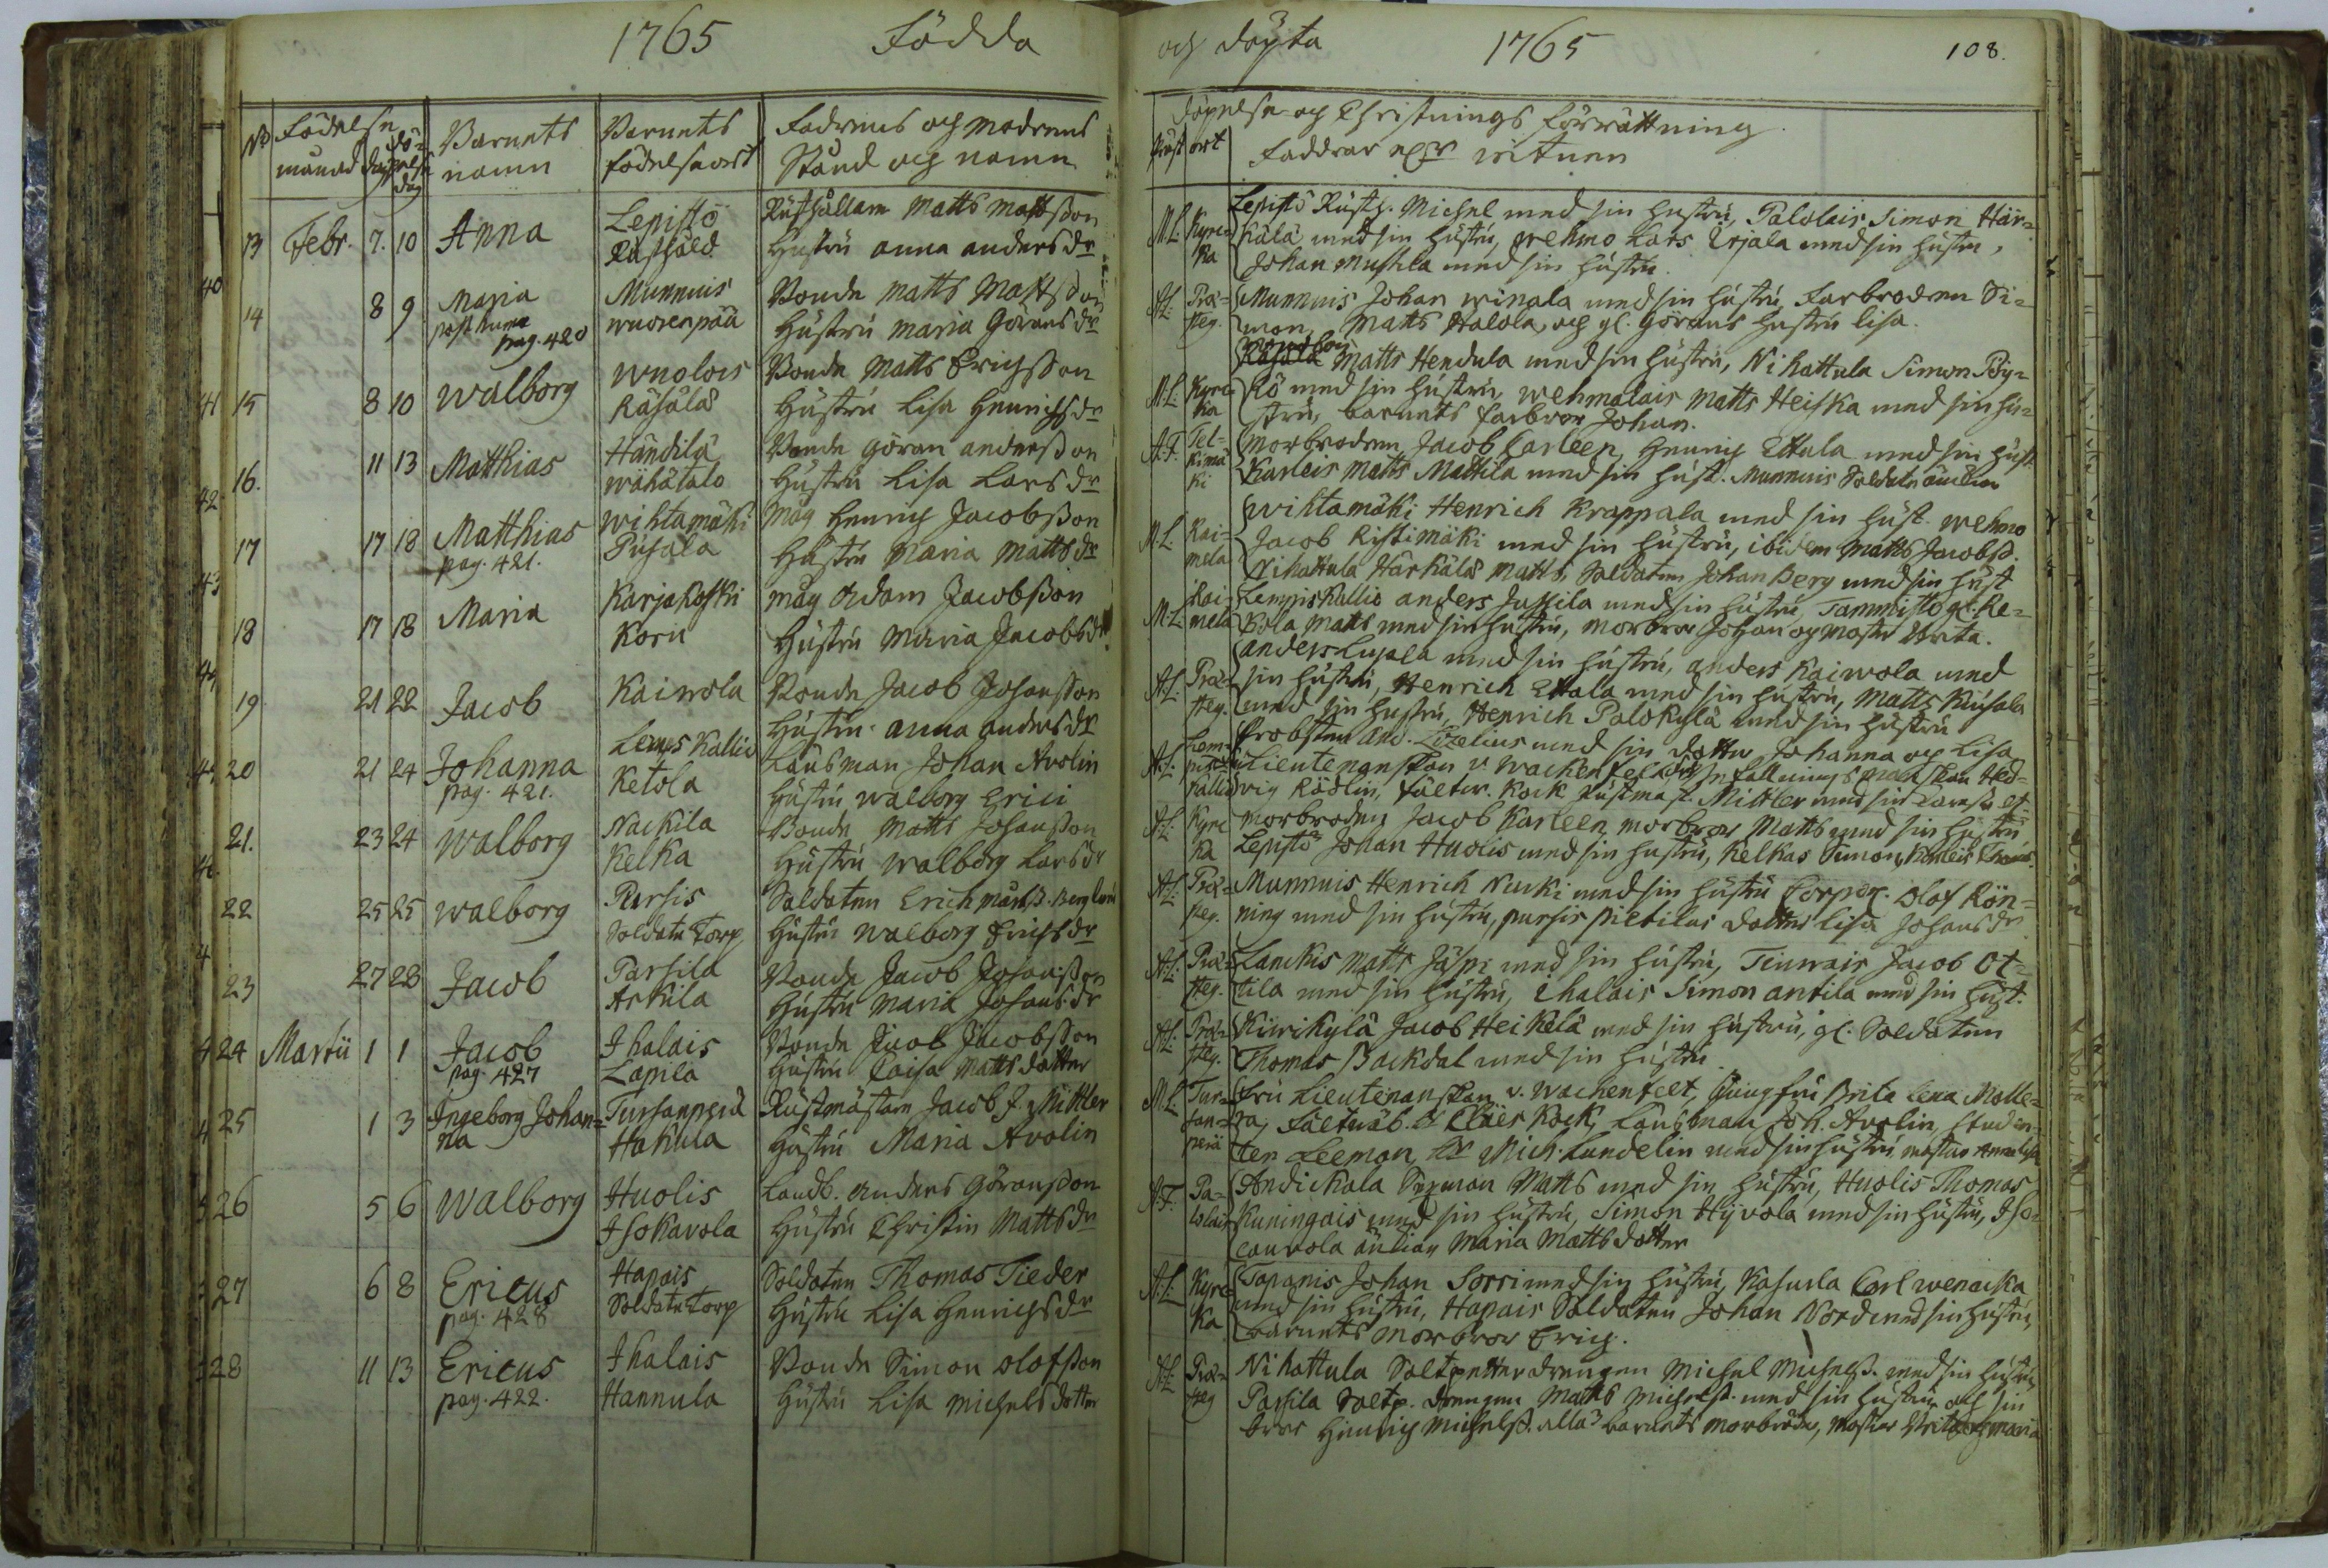 1765 Födda
No Födelse månad dag Döpelse dag
Barnets namn
Barnets födelseort
Fadrens och modrens
Stånd och namn
13 Febr. 7. 10 Anna
Lepistö
Rusthåld
Rusthållare Matts Mattsson
Hustru Anna Andersdr
14 8 9 Maria
posthuma
pag. 420
Munnuis
wuorenpää
Bonde Matts Mattsson
Hustru Maria Göransdr
15 8 10 Walborg
Wuolois
Räsälä
Bonde Matts Erichsson
Hustru Lisa Henrichsdr
16. 11 13 Matthias
Händilä
wähätalo
Bonde Göran Andersson
Hustru Lisa Larsdr
17 17 18 Matthias
pag. 421.
Wihtamäki
Pusala
Måg Henrich Jacobsson
Hustru Maria Mattsdr
18 17 18 Maria
Karjakoski
Koru
Måg Adam Jacobsson
Hustru Maria Jacobsdr
19 21 22 Jacob
Kaiwola
Bonde Jacob Johansson
Hustru Anna Andersdr
20 21 24 Johanna
pag. 421.
Lemis Kallio
Ketola
Länsman Johan Avolin
Hustru Walborg Erici
21. 23 24 Walborg
Nackila
Kelka
Bonde Matts Johansson
Hustru Walborg Larsdr
22 25 25 Walborg
Pursis
Soldate Torp
Soldaten Erich
Hustru Walborg Erichsdr
23 27 28 Jacob
Parsila
Arkila
Bonde Jacob Johansson
Hustru Maria Johansdr
24 Martii 1 1 Jacob
pag. 427
Ihalais
Lapila
Bonde Jacob Jacobsson
Hustru Caisa Mattsdotter
25 1 3 Ingeborg Johan=
na
Tursanperä
Hakula
Rustmästare Jacob J. Mittler
Hustru Maria Avolin
26 5 6 Walborg
Huolis
Isokavola
Landb. Anders Göransson
Hustru Christin Mattsdr
27 6 8 Ericus
pag. 428
Hapais
Soldate Torp
Soldaten Thomas Tieder
Hustru Lisa Henrichsdr
28 11 13 Ericus
pag. 422.
Ihalais
Hannula
Bonde Simon Olofsson
Hustru Lisa Michelsdotter
och döpta 1765 108.
Döpelse och Christnings förrättning
Präst ort
Faddrar eller witnen
M.L. Kyrc=
ka
Lepistö Rusth. Michel med sin hustru, Palolais Simon Här=
kälä med sin hustru, Wehmo Lars Erjala med sin hustru,
Johan Mustila med sin hustru.
A.L. Præ=
steg.
Munnuis Johan Winala med sin hustru, Farbrodren Si=
mon, Matts Halola, och gl. Görans hustru Lisa.
M.L. Kyrc
ka
Matts Hendula med sin hustru, Nihattula Simon Pöy=
kö med sin hustru, Wehmalais Matts Heiska med sin hu=
stru, barnets farbror Johan.
A.F. Tel=
kimä
ki
Morbrodren Jacob Carleen, Henrich Ettala med sin hust.
Karleis Matts Mattila med sin hust. Munnuis Soldate änckan
M.L. Kai=
mela
Wihtamäki Henrich Krappala med sin hust. Wehmo
Jacob Ristimäki med sin hustru, ibidem Matts Jacobss.
Nihattula Härkälä Matts, Soldaten Johan Berg med sin hust
M.L. Kai=
mela
Lemmis Kallio Anders Jussila med sin hustru, Tammisto gl. Re=
kola Matts med sin hustru, Morbror Johan och Moster Brita.
A.L. Præ=
steg.
Anders Lujala med sin hustru, Anders Kaiwola med
sin hustru, Henrich Ettala med sin hustru, Matts Kuusala
med sin hustru, Henrich Palokylä med sin hustru
A.L. Lem=
kallio
Probsten And. Lizelius med sin dotter Johanna och Lisa
Lieutenanskan v. Wachenfelt Hed=
vig Rödlin, Fältw. Kock Rustmäst. Mittler med sin
A.L. Kyrc
ka
Morbrodren Jacob Karleen, Morbror Matts med sin hustru
Lepistö Johan Huolis med sin hustru, Kelkas Simon, Karleis
A.L. Præ=
steg.
Munnuis Henrich Nuski med sin hustru Corpor. Olof Rön=
ning med sin hustru, Pursis Pietilas dotter Lisa Johansdr
A.L. Præ=
steg.
Lanckis Matts Jäspi med sin hustru, Tinwais Jacob Ot=
tila med sin hustru, Ihalais Simon Antila med sin hust.
A.L. Præ=
steg.
Kiwikylä Jacob Heikelä med sin hustru, gl. Soldaten
Thomas Backdal med sin hustru
M.L. Tur=
san=
perä
Fru Lieutenanskan v. Wachenfelt, Jungfru Brita Lena Molle=
ra, Fältwäb. Claes Kock, Länsman Joh. Avolin, Studen=
ten Leeman, Hr Mich. Lundelin med sin hustru, moster Annalisa
A.F. Pa=
lolais
Andickala Simon Matts med sin hustru, Huolis Thomas
Kuningois med sin hustru, Simon Hyvola med sin hustru, Iso=
cauvola änckan Maria Mattsdotter
A.L. Kyrc=
ka
Tapanis Johan Sorri med sin hustru, Kasurla Carl Wenaiska
med sin hustru, Hapais Soldaten Johan Nord med sin hustru,
barnets Morbror Erich.
A.L. Præ=
steg
Nihattula Saltpetter drengen Michel Michelss. med sin hustru,
Parsila Saltp. drengen Matts Michelss. med sin hustru och sin
bror Henrich Michelss. alla barnets morbröder, Moster Brita och Maria